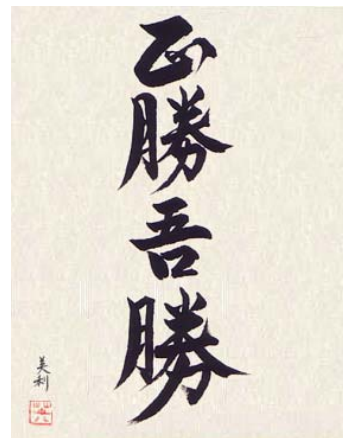 正勝吾勝
美利